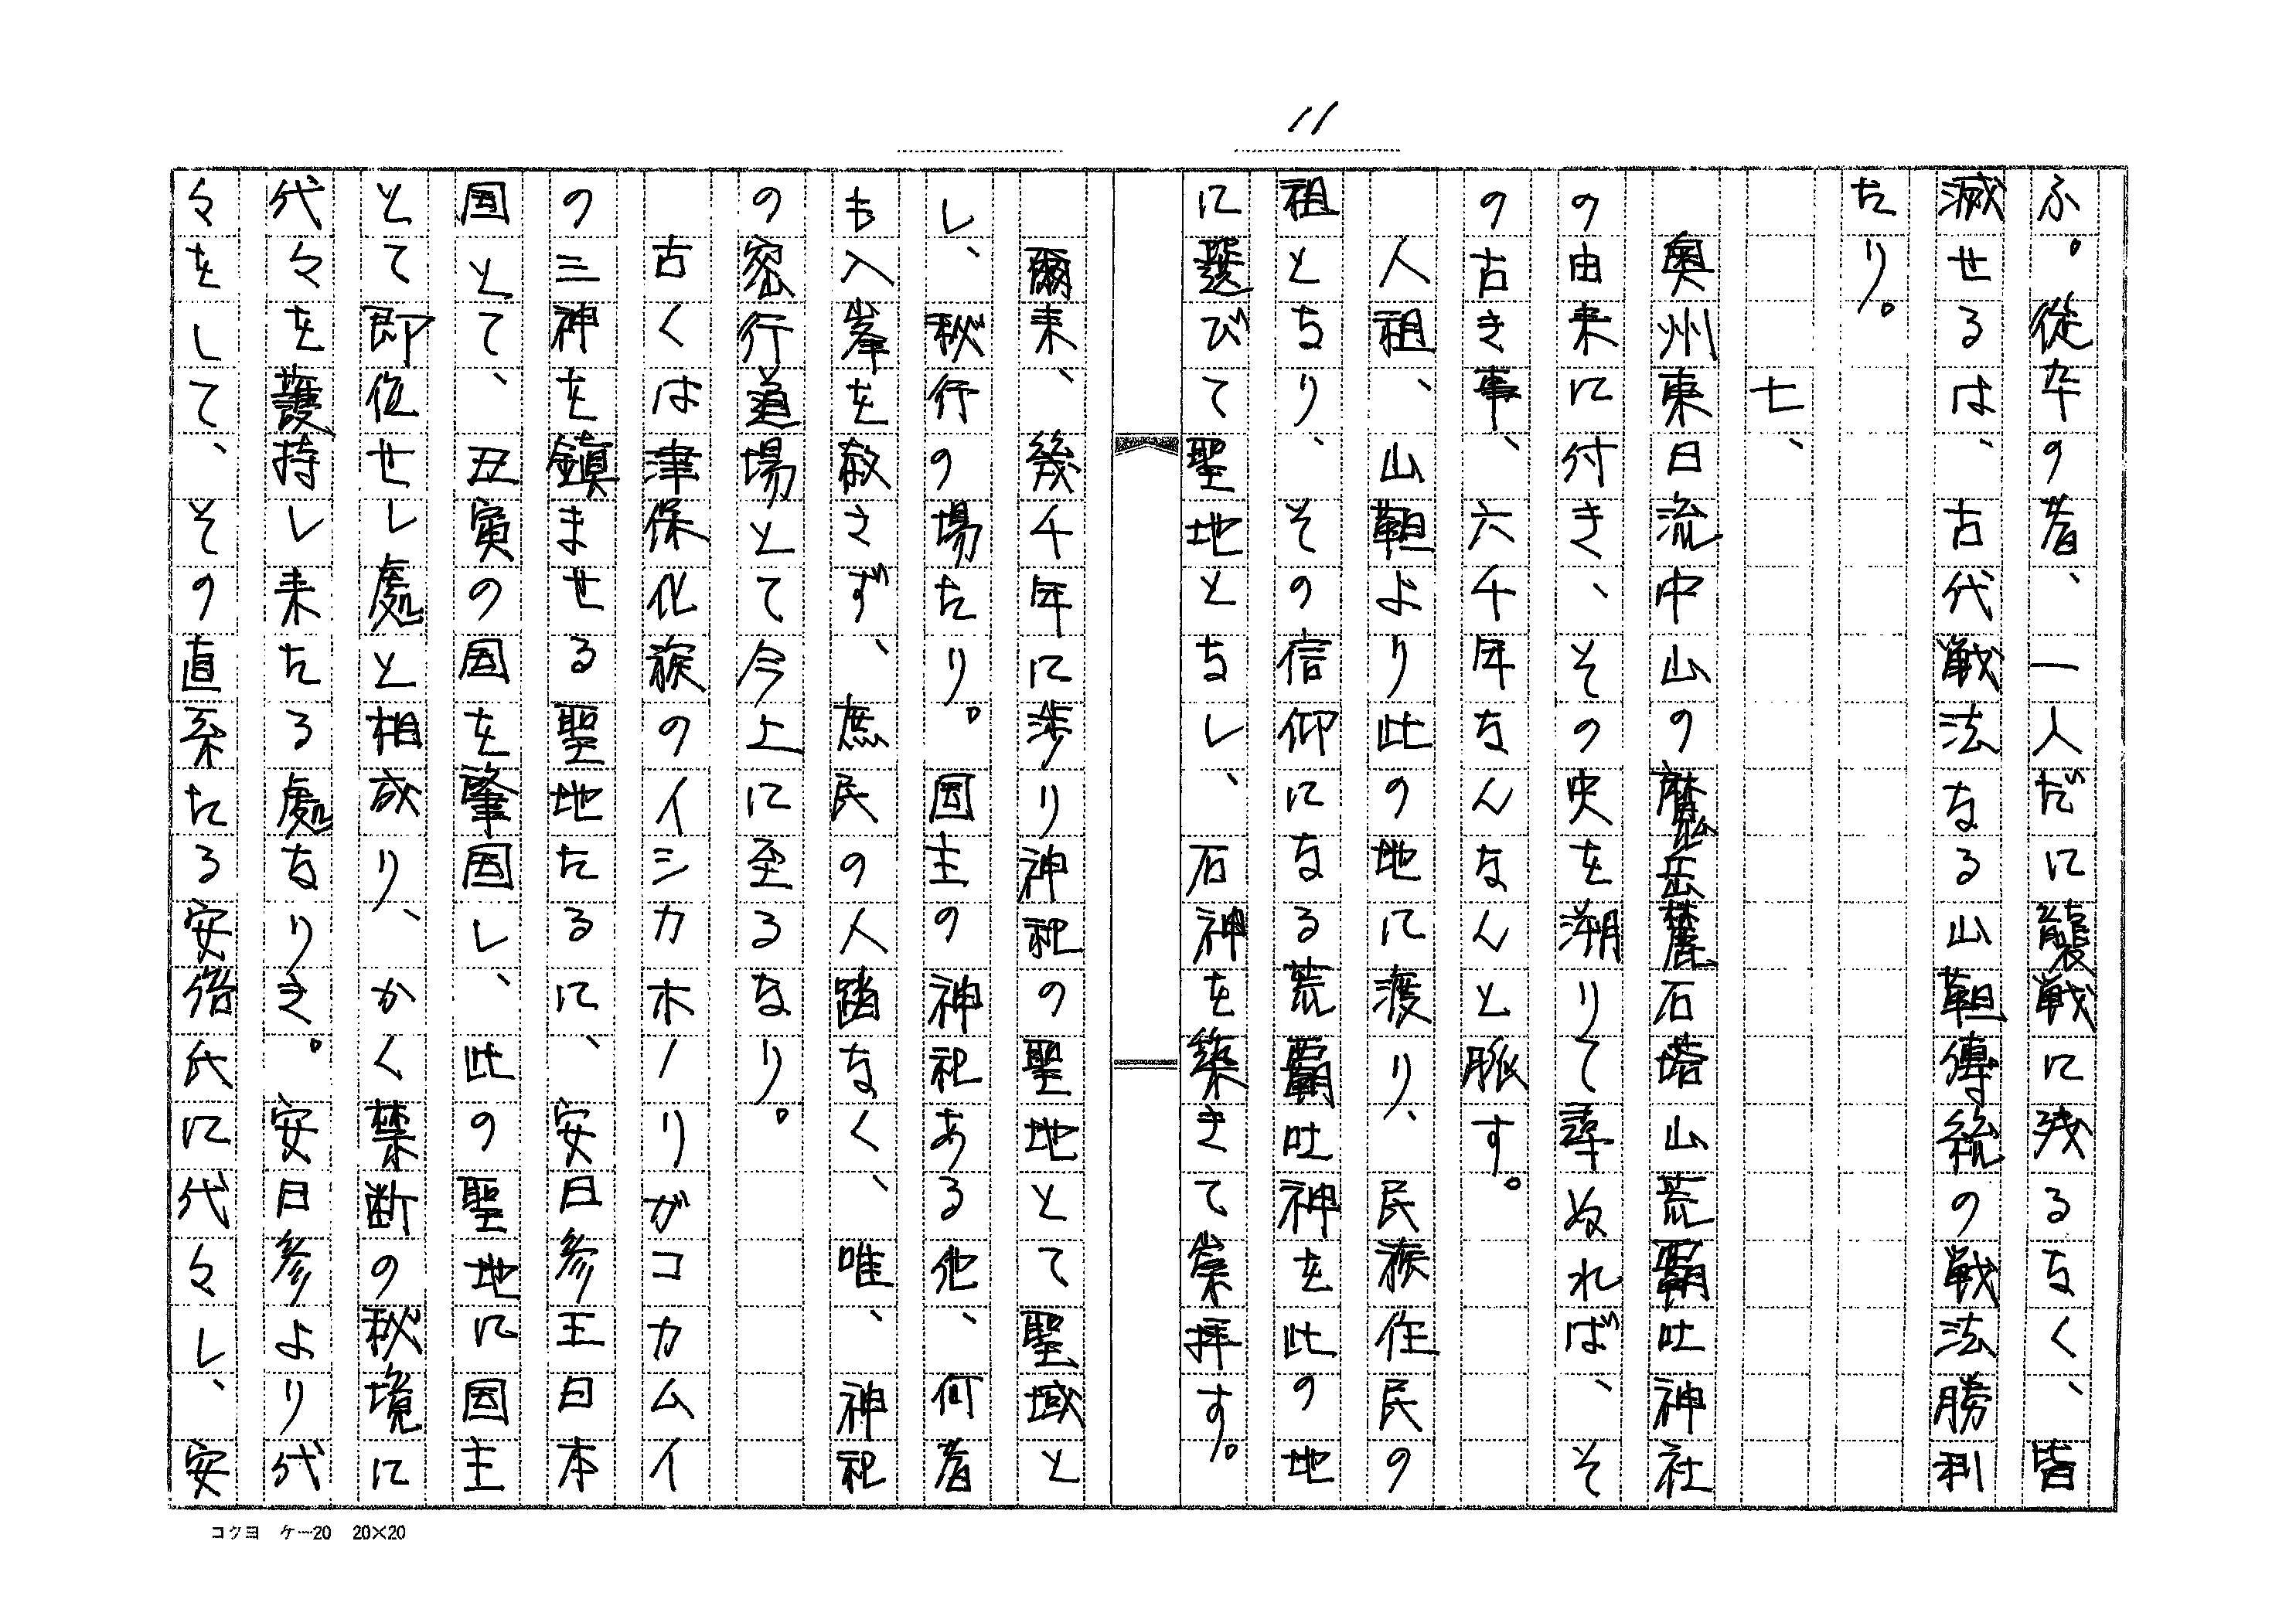 11
ふ。従卆の者、一人だに襲戦に残るなく、皆
滅せるは、古代戦法なる山靼傳統の戦法勝利
たり。
七、
奥州東日流中山の魔岳麓石塔山荒覇吐神社
の由来に付き、その史を溯りて尋ぬれば、そ
の古き事、六千年なんなんと脈す。
人祖、山靼より此の地に渡り、民族住民の
祖となり、その信仰になる荒覇吐神を此の地
に選びて聖地となし、石神を築きて崇拝す。
爾来、幾千年に渉り神祀の聖地とて聖域と
し、秘行の場たり。国主の神祀ある他、何者
も入峯を赦さず、庶民の人踏なく、唯、神祀
の密行道場とて今上に至るなり。
古くは津保化族のイシカホノリガコカムイ
の三神を鎮ませる聖地たるに、安日彦王日本
国とて、丑寅の国を肇国し、此の聖地に国主
とて即位せし処と相成り、かく禁断の秘境に
代々を護持し来たる處なりき。安日彦より代
々をして、その直系たる安倍氏に代々し、安
コクヨ ケー20 20×20